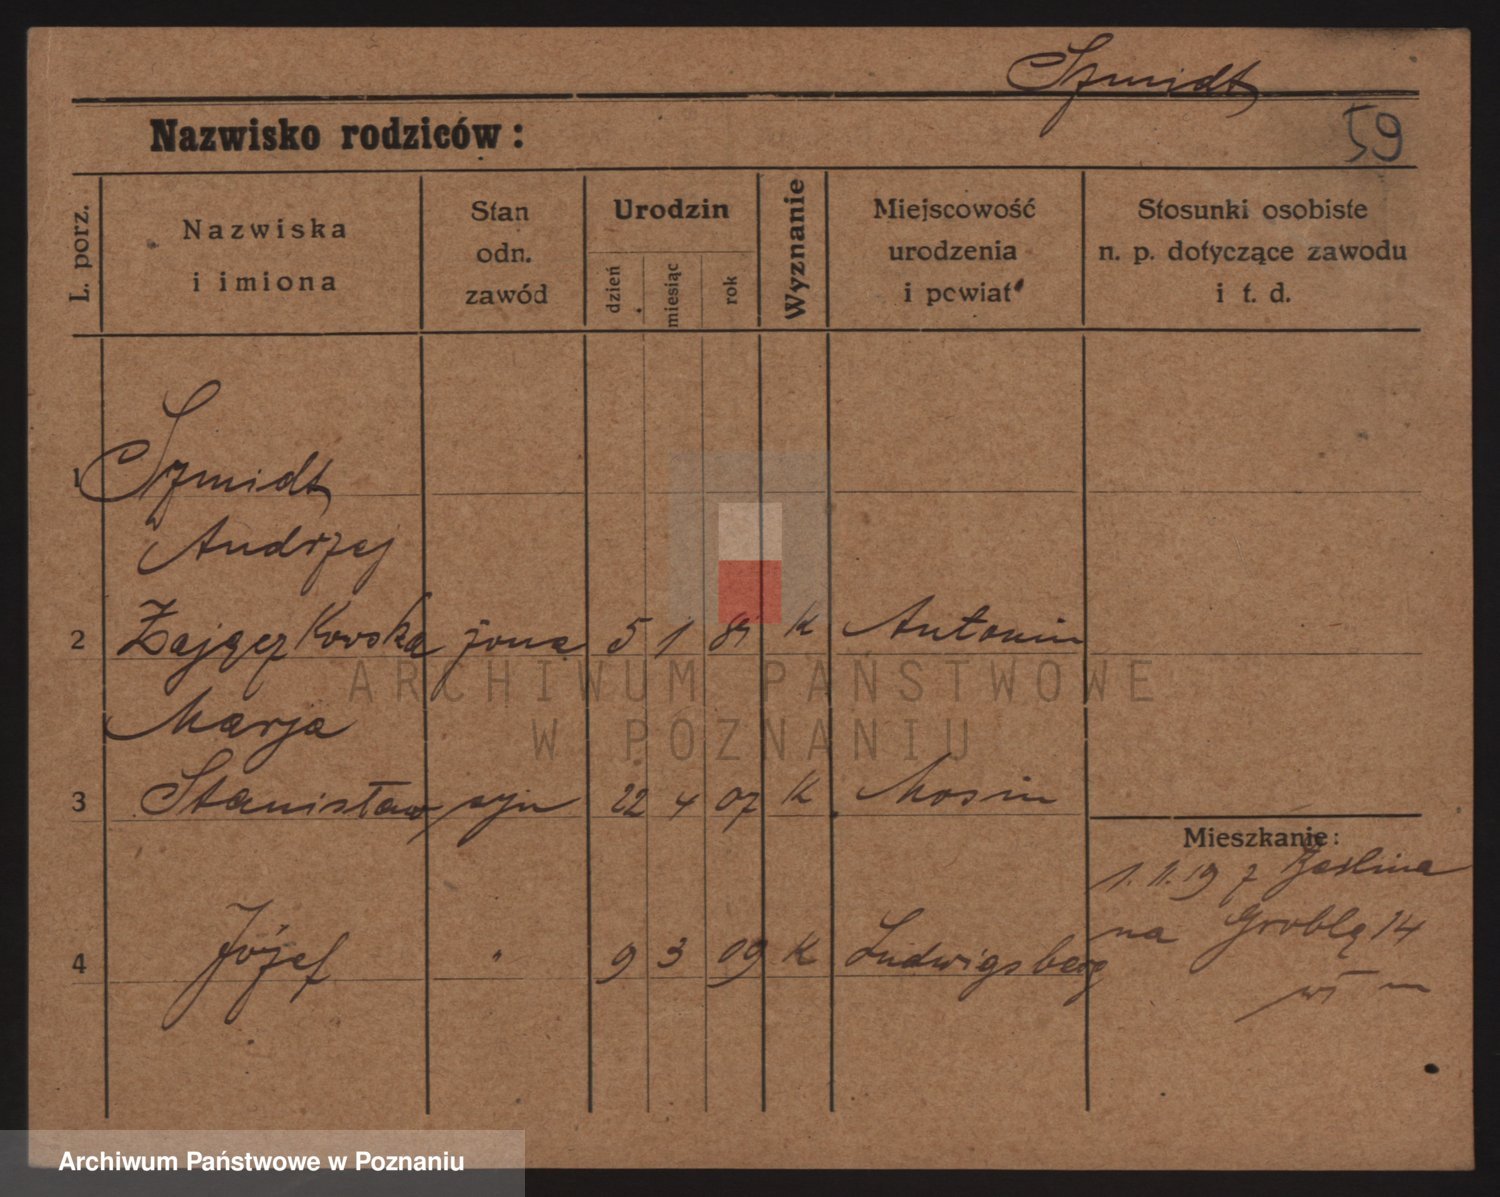 Szmidt
Nazwisko rodziców:
59
L. porz.
Nazwiska
i imiona
Stan
odn.
zawód
Urodzin
dzień
miesiąc
rok
Wyznanie
Miejscowość
urodzenia
i powiat
Stosunki osobiste
n. p. dotyczące zawodu
i t. d.
1 Szmidt
Andrzej
2 Zajączkowska żona 5 1 K Antonin
ARCHIWUM PAŃSTWOWE
W POZNANIU
Marja
3 Stanisław syn 22 4 07 K Mosin
Mieszkanie:
1.11.19 z
na Groblą 14
4 Józef " 9 3 09 K Ludwigsberg
Archiwum Państwowe w Poznaniu